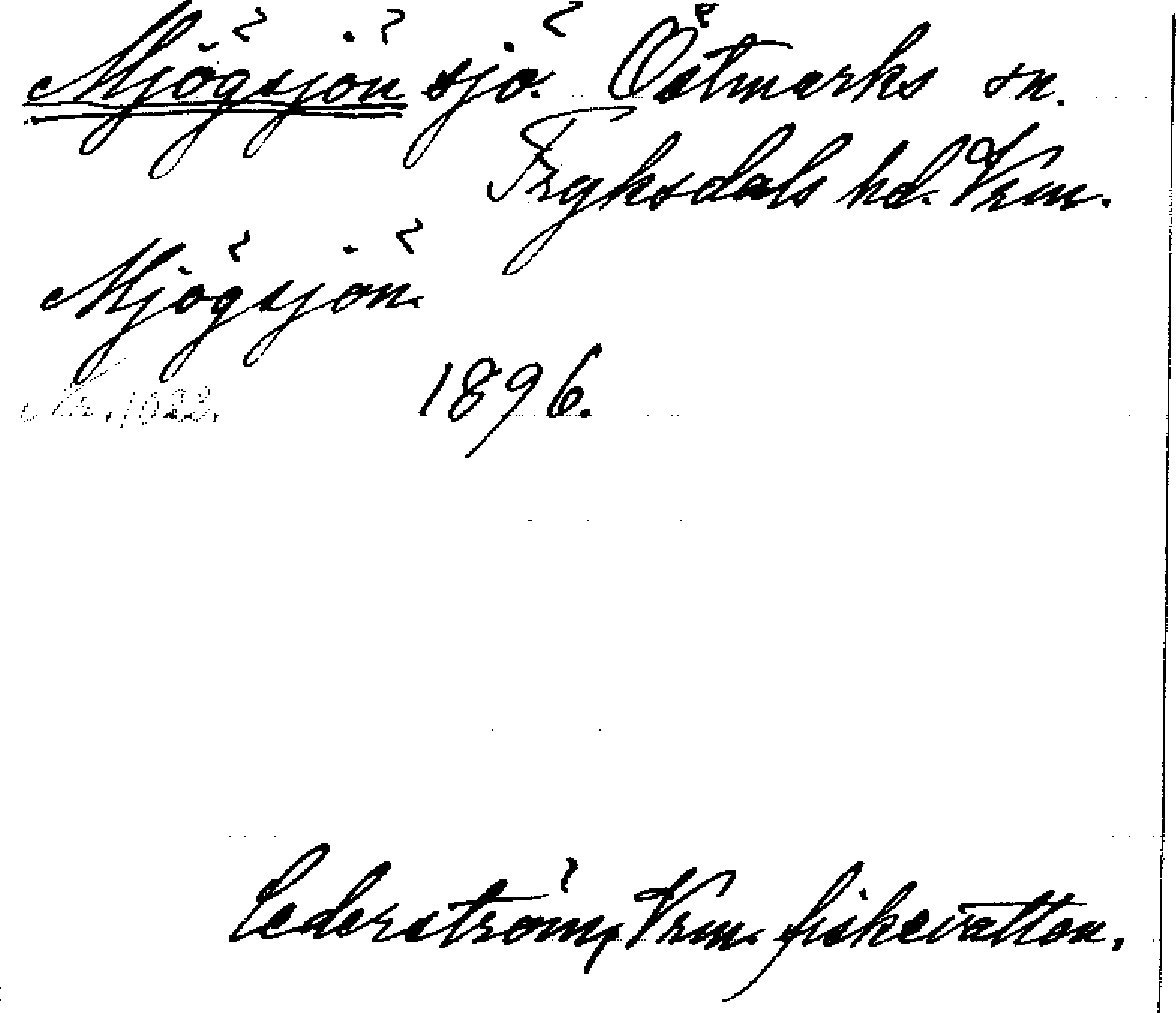 Mjögsjön sjö. Östmarks sn.
Fryksdals hd. Vrm.
Mjögsjön.
1896.
Nr. 1022.
Cederström, Vrm. fiskevatten.